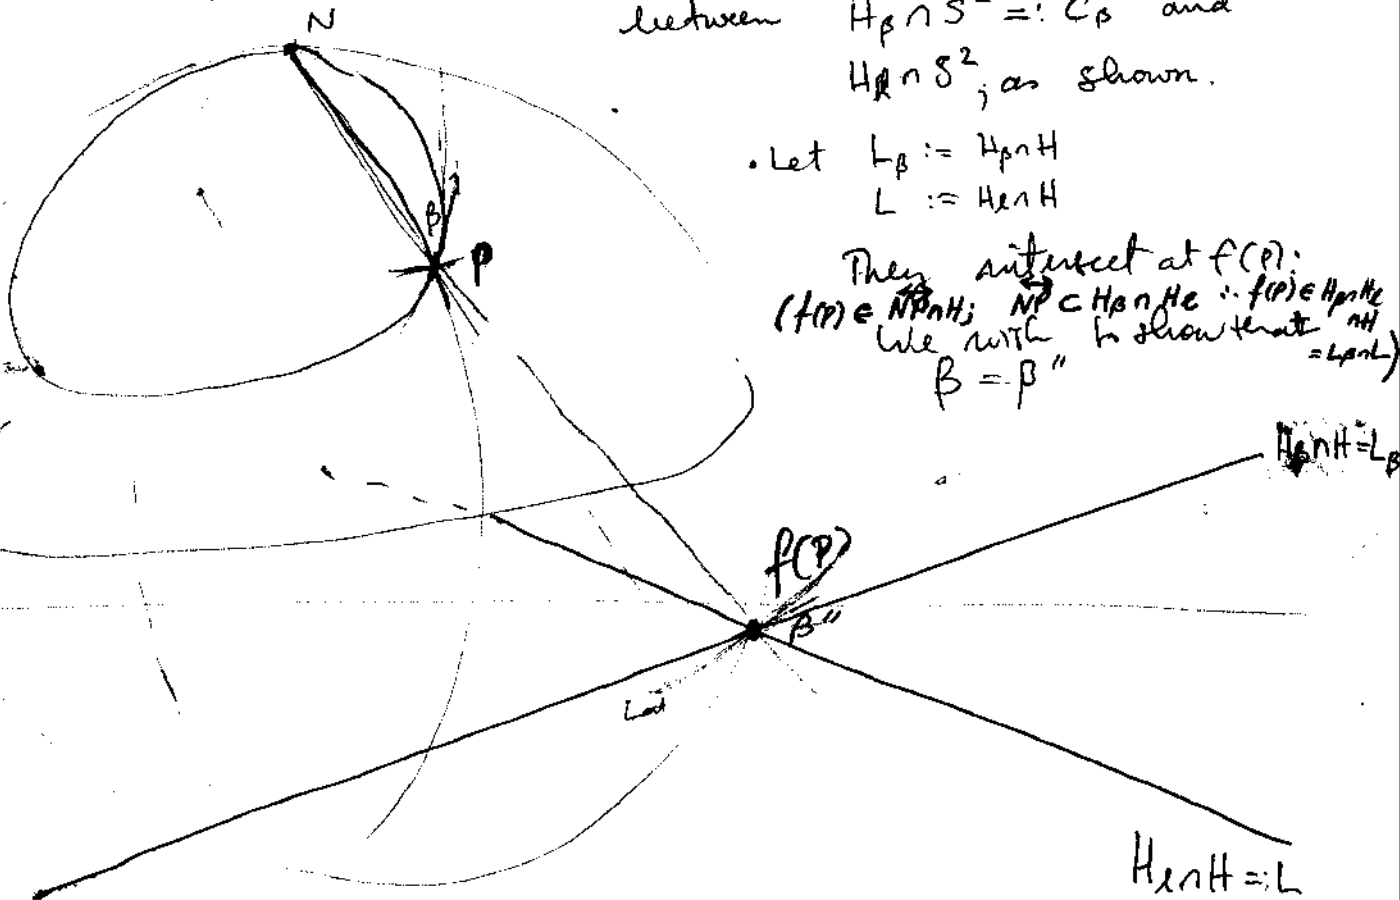 N
between H_β ∩ S² =: C_β and
H_ℓ ∩ S², as shown.
• Let L_β := H_β ∩ H
L := H_ℓ ∩ H
They intersect at f(P):
(f(P) ∈ NP ∩ H; NP ⊂ H_β ∩ H_ℓ ∴ f(P) ∈ H_β ∩ H_ℓ
∩ H
= L_β ∩ L)
We wish to show that
β = β″
β
P
H_β ∩ H = L_β
f(P)
β″
H_ℓ ∩ H =: L